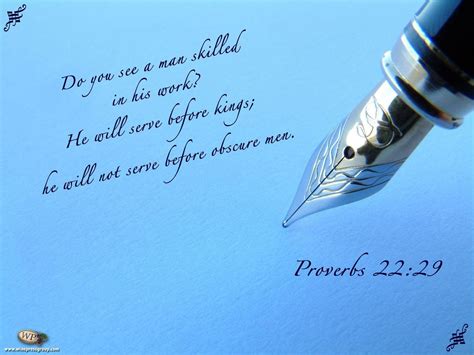 Do you see a man skilled
in his work?
He will serve before kings;
he will not serve before obscure men.
Proverbs 22:29
WP